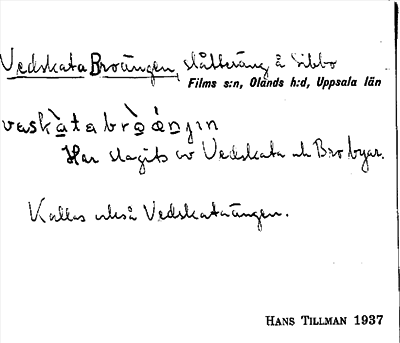 Vedskata Broängen, slåtteräng å Sibbo
Films s:n, Olands h:d, Uppsala län
vaskàta bròǻnjın
Har slagits av Vedskata och Bro byar.
Kallas också Vedskataängen.
HANS TILLMAN 1937